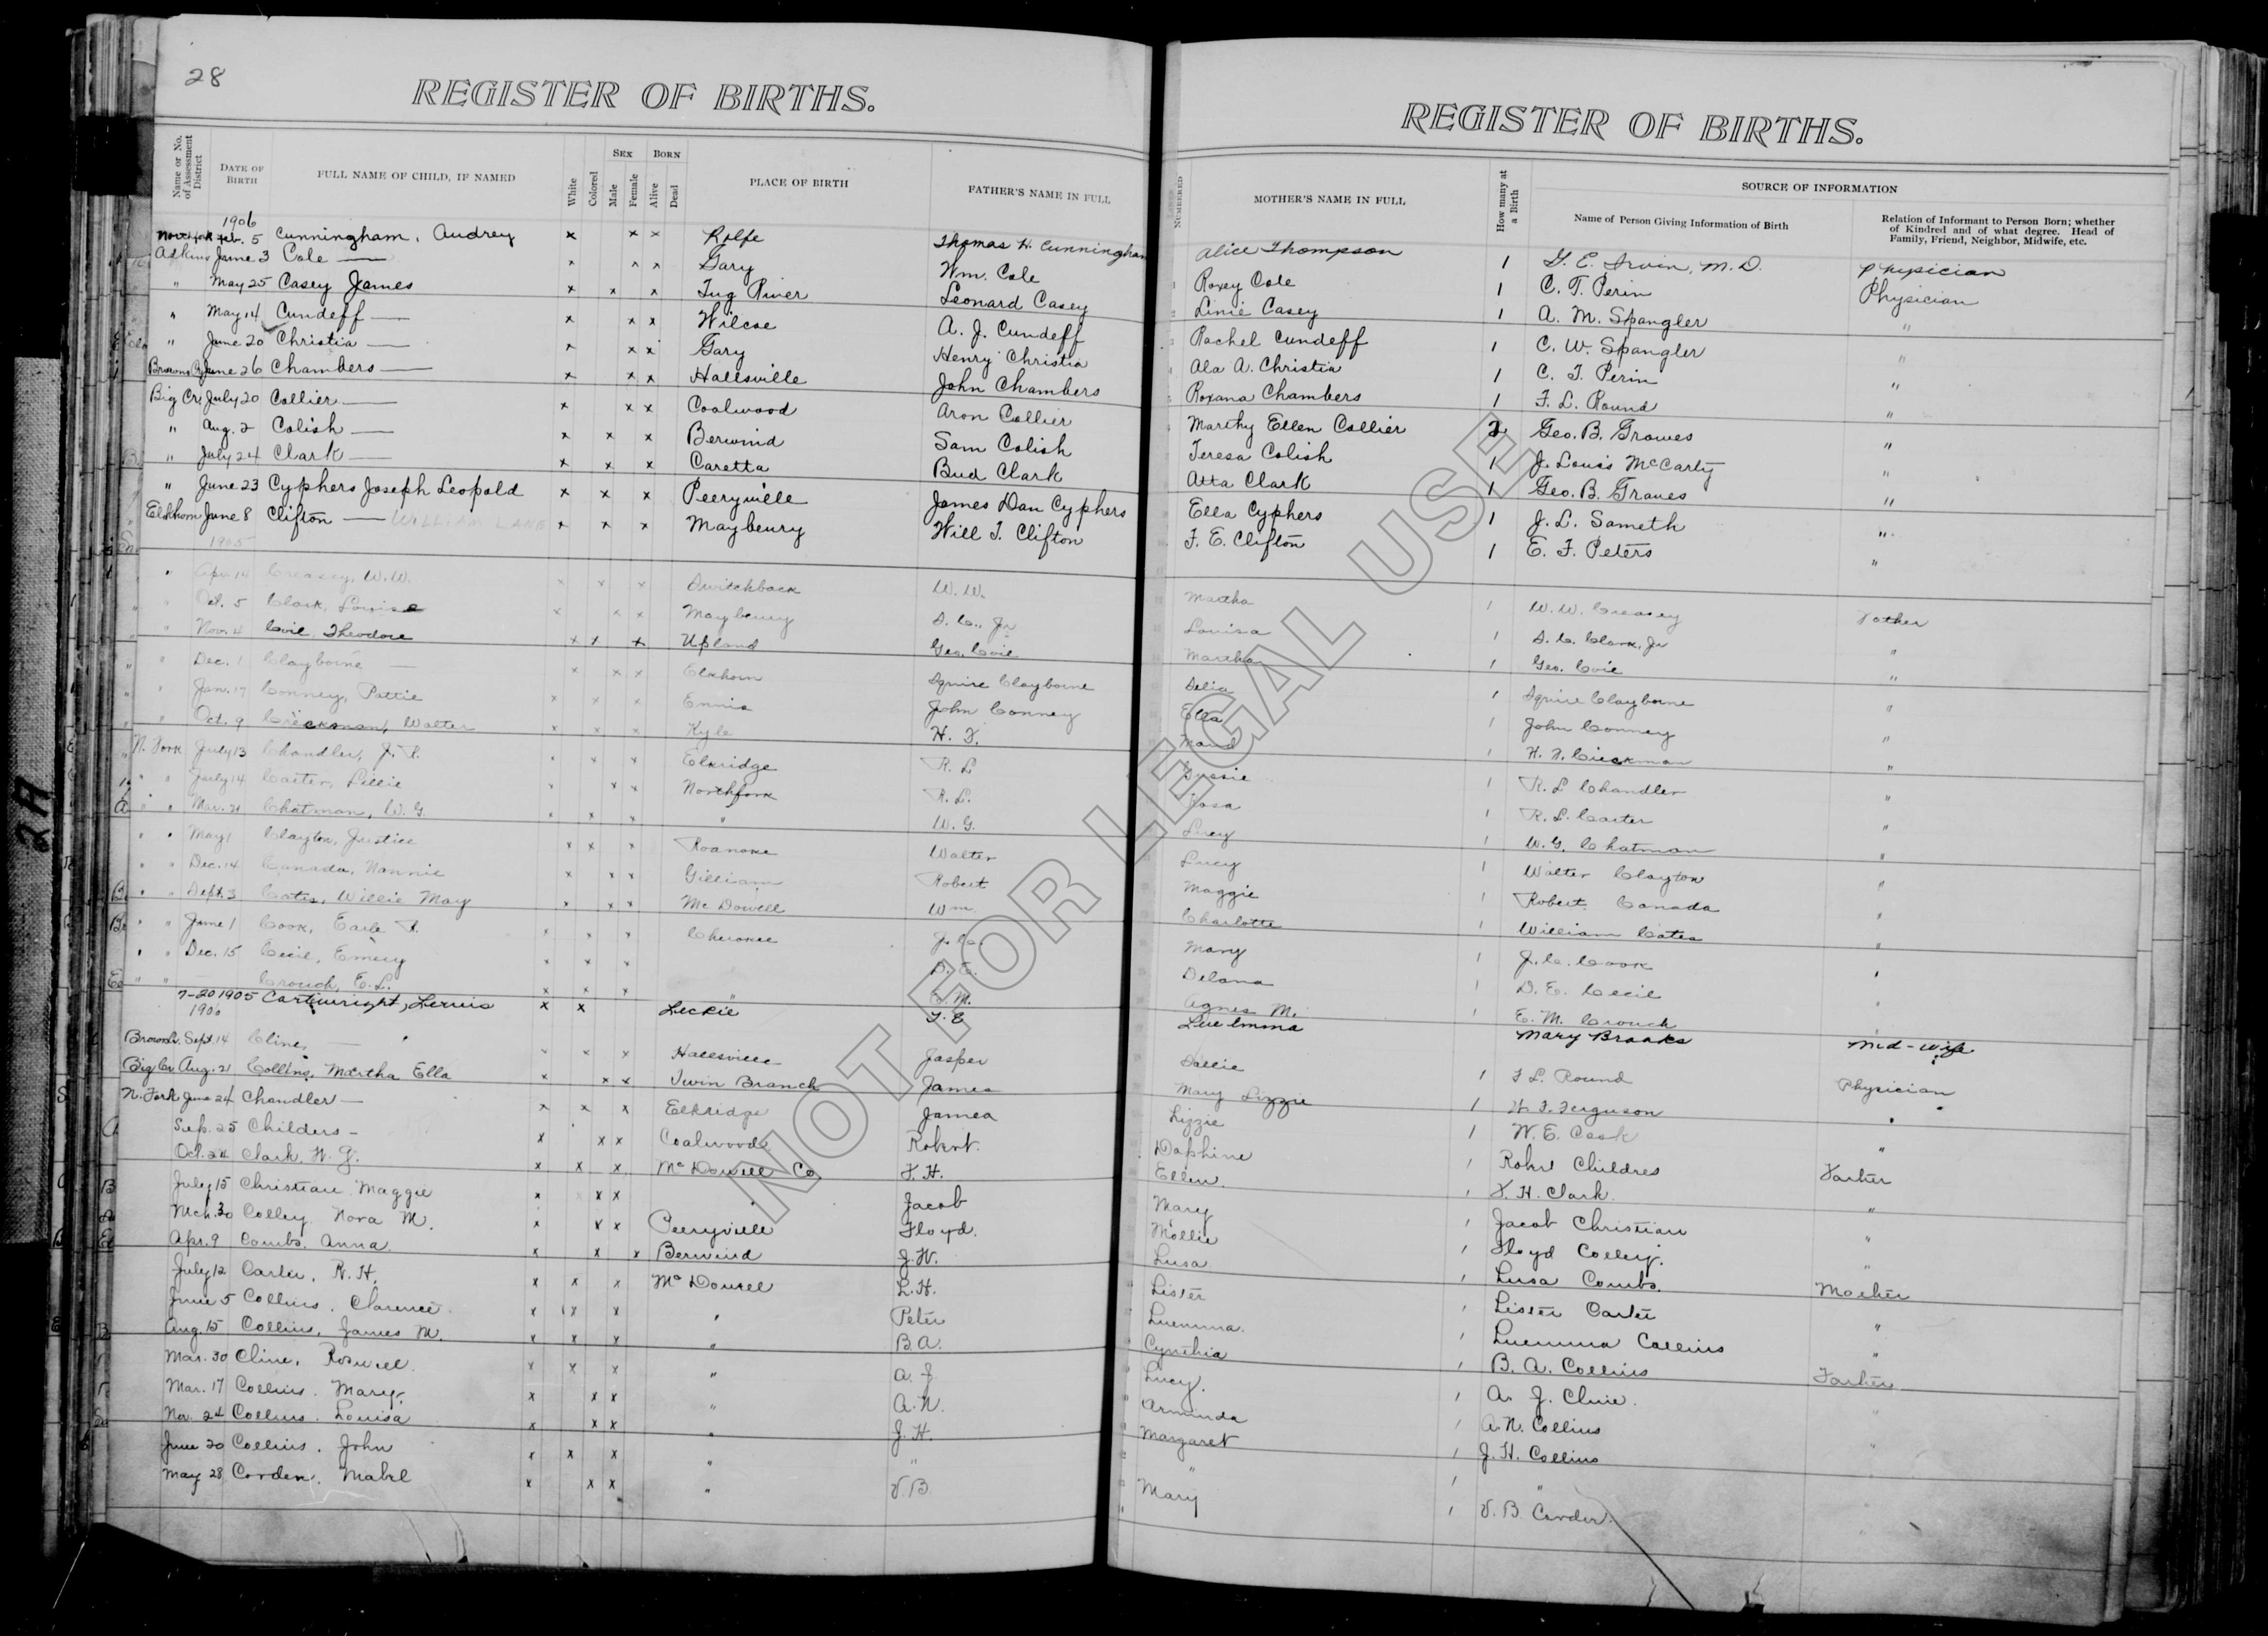 28
REGISTER OF BIRTHS.
REGISTER OF BIRTHS.
Name or No. of Assessment District
DATE OF BIRTH
FULL NAME OF CHILD, IF NAMED
White
Colored
SEX
Male
Female
BORN
Alive
Dead
PLACE OF BIRTH
FATHER'S NAME IN FULL
NUMBERED
MOTHER'S NAME IN FULL
How many at a Birth
SOURCE OF INFORMATION
Name of Person Giving Information of Birth
Relation of Informant to Person Born; whether of Kindred and of what degree. Head of Family, Friend, Neighbor, Midwife, etc.
1906
Northfork Feb. 5 Cunningham, Audrey x x x Rolfe Thomas H. Cunningham Alice Thompson 1 G. E. Irvin, M.D. Physician
Adkins June 3 Cole — x x x Gary Wm. Cole Roxey Cole 1 C. T. Perin Physician
" May 25 Casey James x x x Tug River Leonard Casey Linie Casey 1 A. M. Spangler "
" May 14 Cundeff — x x x Wilcoe A. J. Cundeff Rachel Cundeff 1 C. W. Spangler "
" June 20 Christia — x x x Gary Henry Christia Ala A. Christia 1 C. T. Perin "
Browns Cr June 26 Chambers — x x x Hallsville John Chambers Roxana Chambers 1 F. L. Round "
Big Cr. July 20 Collier — x x x Coalwood Aron Collier Marthy Ellen Collier 2 Geo. B. Graves "
" Aug. 2 Colish — x x x Berwind Sam Colish Teresa Colish 1 J. Louis McCarty "
" July 24 Clark — x x x Caretta Bud Clark Atta Clark 1 Geo. B. Graves "
" June 23 Cyphers Joseph Leopold x x x Peeryville James Dan Cyphers Ella Cyphers 1 J. L. Sameth "
Elkhorn June 8 Clifton — WILLIAM LANE x x x Maybeury Will T. Clifton F. E. Clifton 1 E. F. Peters "
1905
" Apr. 14 Creasey, W. W. x x x Switchback W. W. Martha 1 W. W. Creasey Father
" Oct. 5 Clark, Louise x x x Maybeury S. C., Jr Louisa 1 S. C. Clark, Jr "
" Nov. 4 Coie, Theodore x x x Upland Geo. Coie Martha 1 Geo. Coie "
" Dec. 1 Clayborne — x x x Elkhorn Squire Clayborne Delia 1 Squire Clayborne "
" Jan. 17 Conney, Pattie x x x Ennis John Conney Ella 1 John Conney "
" Oct. 9 Crickman, Walter x x x Kyle H. F. Maud 1 H. F. Crickman "
N. Fork July 13 Chandler, J. R. x x x Elkridge R. L. Susie 1 R. L. Chandler "
" " July 14 Carter, Lillie x x x Northfork R. L. Rosa 1 R. L. Carter "
" " Mar. 21 Chatman, W. G. x x x " W. G. Lucy 1 W. G. Chatman "
" " May 1 Clayton, Justice x x x Roanoke Walter Lucy 1 Walter Clayton "
" " Dec. 14 Canada, Nannie x x x Gilliam Robert Maggie 1 Robert Canada "
" " Sept. 3 Cates, Willie May x x x McDowell Wm Charlotte 1 William Cates "
" " June 1 Cook, Earle R. x x x Cherokee J. C. Mary 1 J. C. Cook "
" " Dec. 15 Cecil, Emery x x x D. E. Delana 1 D. E. Cecil "
" " — Crouch, E. L. x x x " E. M. Agnes M. 1 E. M. Crouch "
7-20 1905 Cartwright, Lewis x x Leckie T. E Lue Emma Mary Brooks Mid-wife
1906
Brown Cr. Sept. 14 Cline, — x x x Hallsville Jasper Sallie 1 F. L. Round Physician
Big Cr. Aug. 21 Collins, Martha Ella x x x Twin Branch James Mary Lizzie 1 H. F. Ferguson "
N. Fork June 24 Chandler — x x x Elkridge James Lizzie 1 W. E. Cook "
Sep. 25 Childers — x x x Coalwood Robert Daphine 1 Robert Childres Father
Oct. 24 Clark, W. G. x x x McDowell Co F. H. Ellen 1 F. H. Clark "
July 15 Christian, Maggie x x x " Jacob Mary 1 Jacob Christian "
Mch. 30 Colley, Nora M. x x x Peeryville Floyd Mollie 1 Floyd Colley "
Apr. 9 Combs, Anna x x x Berwind J. W. Lusa 1 Lusa Combs Mother
July 12 Carter, R. H. x x x McDowell L. H. Lister 1 Lister Carter "
June 5 Collins, Clarence x x x " Peter Luemma 1 Luemma Collins "
Aug. 15 Collins, James M. x x x " B. A. Cynthia 1 B. A. Collins Father
Mar. 30 Cline, Roswell x x x " A. J. Lucy 1 A. J. Cline "
Mar. 17 Collins, Mary x x x " A. N. Arminda 1 A. N. Collins "
Nov. 24 Collins, Louisa x x x " J. H. Margaret 1 J. H. Collins "
June 20 Collins, John x x x " " " 1 "
May 28 Corder, Mabel x x x " V. B. Mary 1 V. B. Corder
2A
NOT FOR LEGAL USE